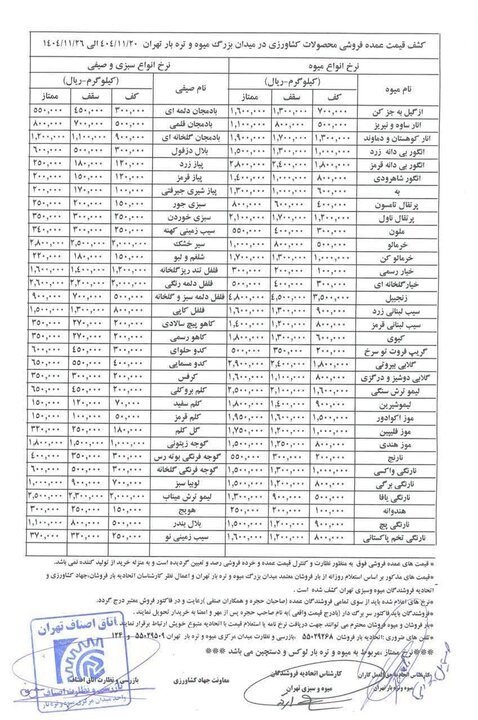 کشف قیمت عمده فروشی محصولات کشاورزی در میدان بزرگ میوه و تره بار تهران ۴۰۴/۱۱/۲۰ الی ۱۴۰۴/۱۱/۲۶
نرخ انواع میوه نرخ انواع سبزی و صیفی
نام میوه (کیلوگرم-ریال) نام صیفی (کیلوگرم-ریال)
کف سقف ممتاز کف سقف ممتاز
ازگیل به جز کن ۷۰۰,۰۰۰ ۱,۳۰۰,۰۰۰ ۱,۶۰۰,۰۰۰ بادمجان دلمه ای ۳۰۰,۰۰۰ ۴۵۰,۰۰۰ ۵۵۰,۰۰۰
انار ساوه و نیریز ۵۰۰,۰۰۰ ۸۰۰,۰۰۰ ۱,۱۰۰,۰۰۰ بادمجان قلمی ۵۰۰,۰۰۰ ۷۰۰,۰۰۰ ۸۰۰,۰۰۰
انار کوهستان و دماوند ۱,۳۰۰,۰۰۰ ۱,۷۰۰,۰۰۰ ۱,۹۰۰,۰۰۰ بادمجان گلخانه ای ۹۰۰,۰۰۰ ۱,۱۰۰,۰۰۰ ۱,۲۰۰,۰۰۰
انگور بی دانه زرد ۱,۰۰۰,۰۰۰ ۱,۳۰۰,۰۰۰ ۱,۵۰۰,۰۰۰ بلال دزفول ۳۰۰,۰۰۰ ۵۰۰,۰۰۰ ۶۰۰,۰۰۰
انگور بی دانه قرمز ۱,۸۰۰,۰۰۰ ۲,۴۰۰,۰۰۰ ۲,۸۰۰,۰۰۰ پیاز زرد ۱۲۰,۰۰۰ ۱۸۰,۰۰۰ ۲۵۰,۰۰۰
انگور شاهرودی ۸۰۰,۰۰۰ ۱,۰۰۰,۰۰۰ ۱,۴۰۰,۰۰۰ پیاز قرمز ۱۲۰,۰۰۰ ۱۵۰,۰۰۰ ۲۰۰,۰۰۰
به ۶۰۰,۰۰۰ ۱,۰۰۰,۰۰۰ ۱,۳۰۰,۰۰۰ پیاز شیری جیرفتی ۱۰۰,۰۰۰ ۱۷۰,۰۰۰ ۲۰۰,۰۰۰
پرتقال تامسون ۴۰۰,۰۰۰ ۶۰۰,۰۰۰ ۸۰۰,۰۰۰ سبزی جور ۱۵۰,۰۰۰ ۲۰۰,۰۰۰ ۲۵۰,۰۰۰
پرتقال ناول ۱,۲۰۰,۰۰۰ ۱,۷۰۰,۰۰۰ ۲,۱۰۰,۰۰۰ سبزی خوردن ۲۵۰,۰۰۰ ۳۰۰,۰۰۰ ۳۵۰,۰۰۰
ملون ۳۰۰,۰۰۰ ۴۰۰,۰۰۰ ۵۵۰,۰۰۰ سیب زمینی کهنه ۲۰۰,۰۰۰ ۳۰۰,۰۰۰ ۳۴۰,۰۰۰
خرمالو ۵۰۰,۰۰۰ ۸۰۰,۰۰۰ ۱,۰۰۰,۰۰۰ سیر خشک ۲,۰۰۰,۰۰۰ ۲,۵۰۰,۰۰۰ ۲,۸۰۰,۰۰۰
خرمالو کن ۱,۰۰۰,۰۰۰ ۱,۳۰۰,۰۰۰ ۱,۷۰۰,۰۰۰ شلغم و لبو ۱۵۰,۰۰۰ ۱۸۰,۰۰۰ ۲۲۰,۰۰۰
خیار رسمی ۱۰۰,۰۰۰ ۲۰۰,۰۰۰ ۳۰۰,۰۰۰ فلفل تند ریز گلخانه ۱,۲۰۰,۰۰۰ ۱,۴۰۰,۰۰۰ ۱,۶۰۰,۰۰۰
خیار گلخانه ای ۳۰۰,۰۰۰ ۴۰۰,۰۰۰ ۵۰۰,۰۰۰ فلفل دلمه رنگی ۲,۰۰۰,۰۰۰ ۲,۲۰۰,۰۰۰ ۲,۶۰۰,۰۰۰
زنجبیل ۳,۵۰۰,۰۰۰ ۴,۵۰۰,۰۰۰ ۴,۸۰۰,۰۰۰ فلفل دلمه سبز و گلخانه ۵۰۰,۰۰۰ ۷۰۰,۰۰۰ ۹۰۰,۰۰۰
سیب لبنانی زرد ۹۰۰,۰۰۰ ۱,۳۰۰,۰۰۰ ۱,۶۰۰,۰۰۰ فلفل کاپی ۸۰۰,۰۰۰ ۱,۳۰۰,۰۰۰ ۱,۵۰۰,۰۰۰
سیب لبنانی قرمز ۸۰۰,۰۰۰ ۱,۲۰۰,۰۰۰ ۱,۴۰۰,۰۰۰ کاهو پیچ سالادی ۲۰۰,۰۰۰ ۲۷۰,۰۰۰ ۳۵۰,۰۰۰
کیوی ۸۰۰,۰۰۰ ۱,۳۰۰,۰۰۰ ۱,۸۰۰,۰۰۰ کاهو رسمی ۲۰۰,۰۰۰ ۲۷۰,۰۰۰ ۳۵۰,۰۰۰
گریپ فروت تو سرخ ۲۰۰,۰۰۰ ۳۵۰,۰۰۰ ۵۰۰,۰۰۰ کدو حلوای ۳۰۰,۰۰۰ ۴۵۰,۰۰۰ ۶۰۰,۰۰۰
گلابی بیروتی ۱,۸۰۰,۰۰۰ ۲,۴۰۰,۰۰۰ ۲,۹۰۰,۰۰۰ کدو مسمایی ۴۰۰,۰۰۰ ۵۵۰,۰۰۰ ۶۵۰,۰۰۰
گلابی دوشیز و درگزی ۸۰۰,۰۰۰ ۱,۱۰۰,۰۰۰ ۱,۶۰۰,۰۰۰ کرفس ۲۰۰,۰۰۰ ۳۰۰,۰۰۰ ۳۵۰,۰۰۰
لیمو ترش سنگی ۱,۶۰۰,۰۰۰ ۲,۱۰۰,۰۰۰ ۲,۵۰۰,۰۰۰ کلم بروکلی ۲۰۰,۰۰۰ ۴۵۰,۰۰۰ ۵۵۰,۰۰۰
لیموشیرین ۹۰۰,۰۰۰ ۱,۴۰۰,۰۰۰ ۱,۸۰۰,۰۰۰ کلم سفید ۷۰,۰۰۰ ۱۲۰,۰۰۰ ۱۵۰,۰۰۰
موز اکوادور ۱,۵۰۰,۰۰۰ ۱,۷۰۰,۰۰۰ ۱,۹۵۰,۰۰۰ کلم قرمز ۵۰,۰۰۰ ۱۰۰,۰۰۰ ۱۵۰,۰۰۰
موز فلیپین ۱,۲۰۰,۰۰۰ ۱,۵۰۰,۰۰۰ ۱,۷۵۰,۰۰۰ گل کلم ۱۸۰,۰۰۰ ۲۵۰,۰۰۰ ۳۲۰,۰۰۰
موز هندی ۸۰۰,۰۰۰ ۱,۲۵۰,۰۰۰ ۱,۵۰۰,۰۰۰ گوجه زیتونی ۱,۰۰۰,۰۰۰ ۱,۵۰۰,۰۰۰ ۱,۸۰۰,۰۰۰
نارنج ۲۰۰,۰۰۰ ۳۰۰,۰۰۰ ۵۵۰,۰۰۰ گوجه فرنگی بوته رس ۳۰۰,۰۰۰ ۴۰۰,۰۰۰ ۴۵۰,۰۰۰
نارنگی واکسی ۱,۰۰۰,۰۰۰ ۱,۳۰۰,۰۰۰ ۱,۵۰۰,۰۰۰ گوجه فرنگی گلخانه ۳۰۰,۰۰۰ ۵۰۰,۰۰۰ ۶۰۰,۰۰۰
نارنگی برگی ۸۰۰,۰۰۰ ۱,۲۰۰,۰۰۰ ۱,۶۰۰,۰۰۰ لوبیا سبز ۷۰۰,۰۰۰ ۹۰۰,۰۰۰ ۱,۰۰۰,۰۰۰
نارنگی یافا ۵۰۰,۰۰۰ ۹۰۰,۰۰۰ ۱,۳۰۰,۰۰۰ لیمو ترش میناب ۲,۰۰۰,۰۰۰ ۲,۳۰۰,۰۰۰ ۲,۵۰۰,۰۰۰
هندوانه ۱۰۰,۰۰۰ ۲۰۰,۰۰۰ ۲۵۰,۰۰۰ هویج ۱۵۰,۰۰۰ ۲۵۰,۰۰۰ ۳۰۰,۰۰۰
نارنگی پج ۸۰۰,۰۰۰ ۱,۲۰۰,۰۰۰ ۱,۵۰۰,۰۰۰ بلال بندر ۵۰۰,۰۰۰ ۸۰۰,۰۰۰ ۱,۱۰۰,۰۰۰
نارنگی تخم پاکستانی ۸۰۰,۰۰۰ ۱,۲۰۰,۰۰۰ ۱,۶۰۰,۰۰۰ سیب زمینی نو ۲۲۰,۰۰۰ ۳۲۰,۰۰۰ ۳۷۰,۰۰۰
*قیمت های عمده فروشی فوق به منظور نظارت و کنترل قیمت عمده و خرده فروشی رصد و تعیین گردیده است و به منزله خرید از تولید کننده نمی باشد.
*قیمت های مذکور بر اساس استعلام روزانه از بار فروشان معتمد میدان بزرگ میوه و تره بار تهران و اعمال نظر کارشناسان اتحادیه بار فروشان، جهاد کشاورزی و
اتحادیه فروشندگان میوه وسبزی تهران کشف شده است.
*نرخ های اعلام شده باید از سوی تمامی فروشندگان عمده (صاحبان حجره و همکاران صنفی) رعایت و در فاکتور فروش معتبر درج گردد.
*فروشندگان باید فاکتور سر برگ دار (بادرج قیمت واقعی) به نام صاحب حجره پس از مهر و امضا به خریدار تحویل نمایند.
*بار فروشان و میوه فروشان محترم می توانند، جهت دریافت نرخ نامه یا استعلام قیمت با اتحادیه متبوع خویش ارتباط برقرار نمایند.
*تلفن های ضروری: اتحادیه بار فروشان ۵۵۰۲۹۴۶۸ . بازرسی و نظارت میدان مرکزی میوه و تره بار تهران ۵۵۰۲۹۵۰۹ و ۱۲۴
***نرخ ممتاز، مربوط به میوه و تره بار لوکس و دستچین می باشد***
کارشناس اتحادیه فروشندگان
میوه و سبزی تهران
میوه و تره بار تهران
معاونت جهاد کشاورزی
بازرسی و نظارت اتاق اصناف
اتاق اصناف تهران
بازرسی و نظارت اصناف
واحد میدان مرکزی میوه و تره بار